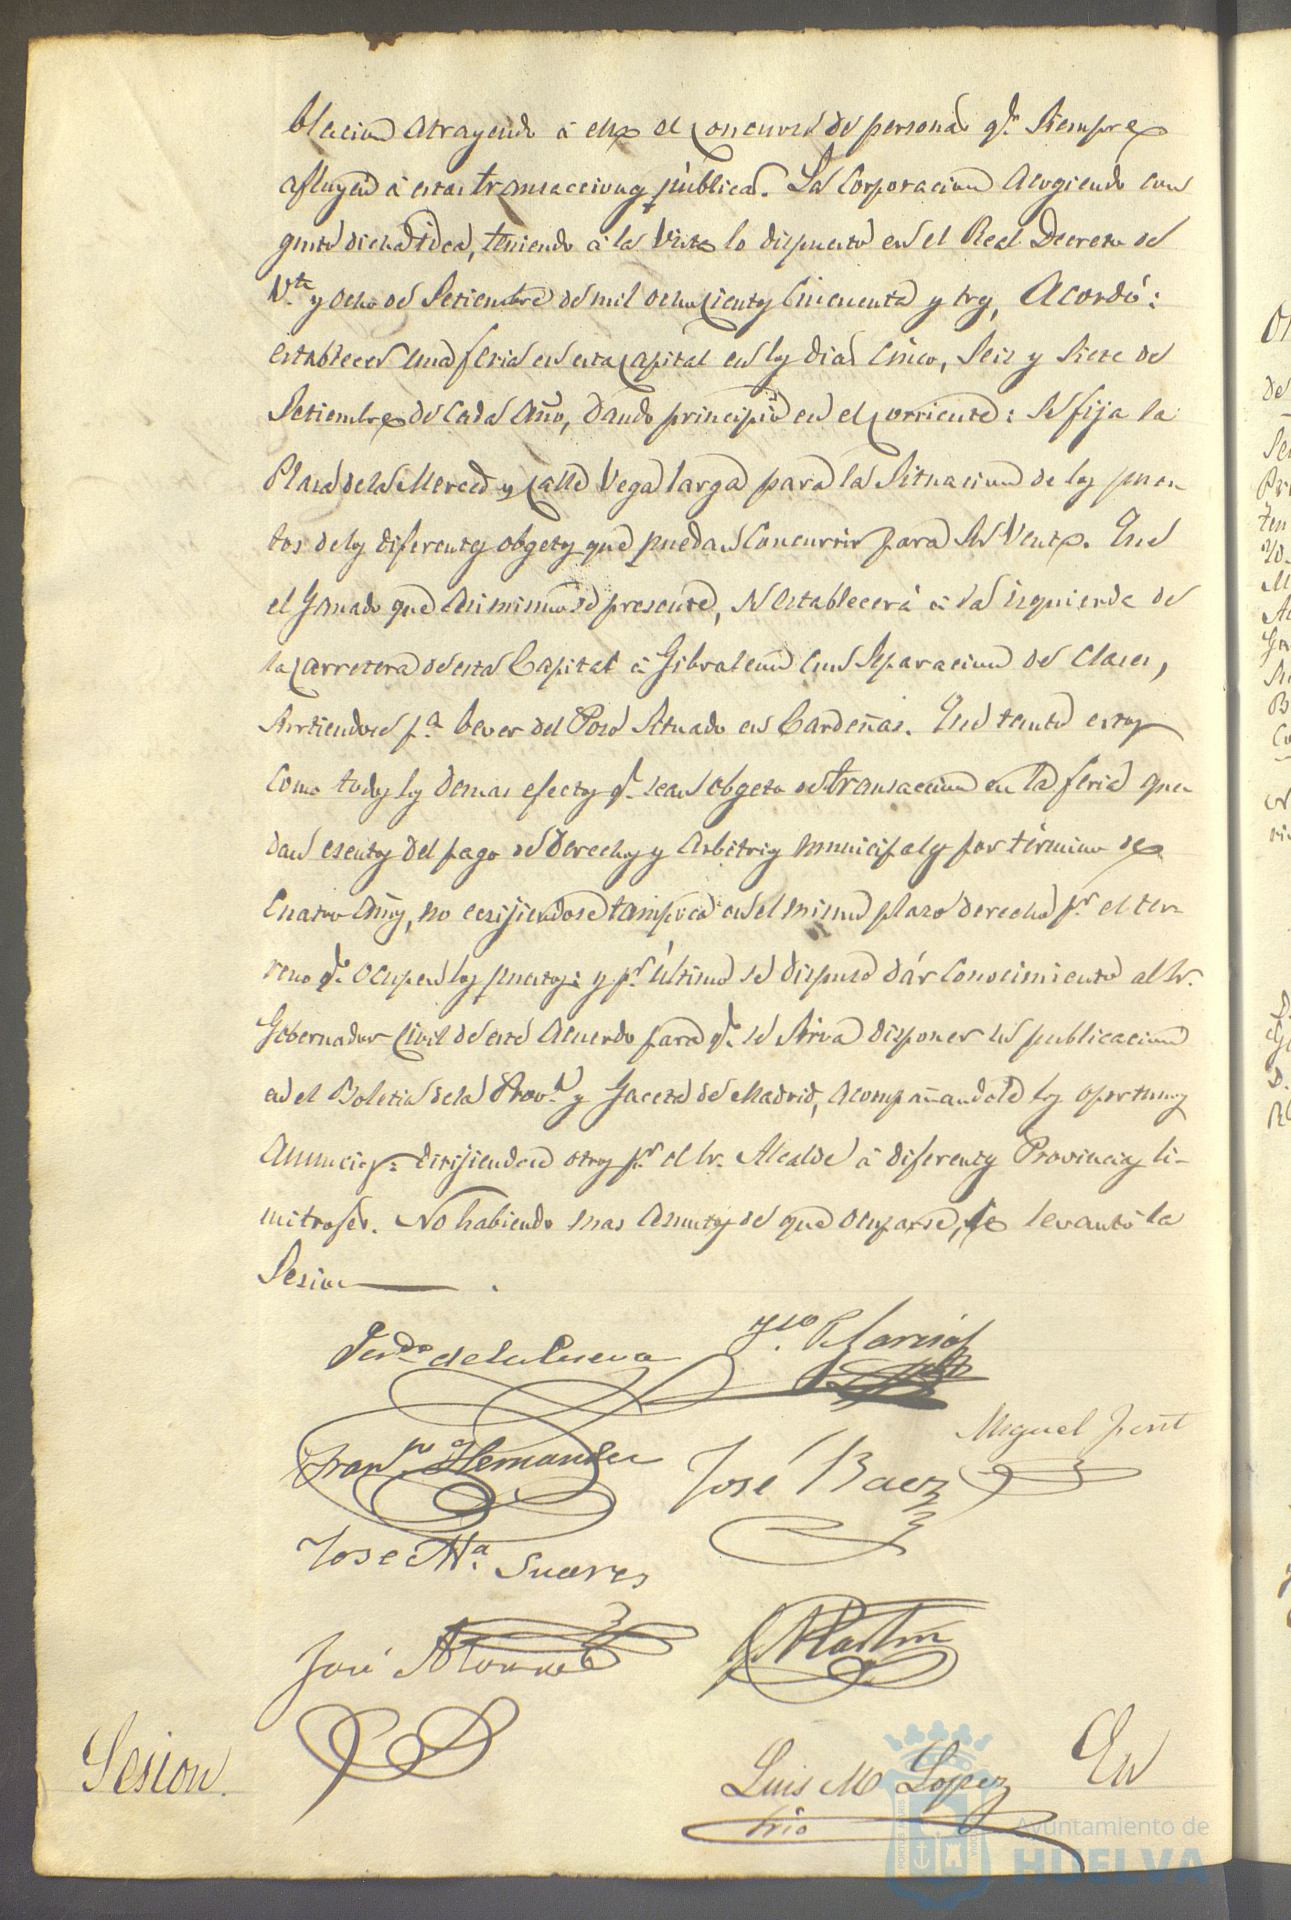 blacion atrayendo á ella el Concurso de personas qe. Siempre
afluyen á estas transacciones públicas. La Corporacion acogiendo con
gusto dicha idea, teniendo á la Vista lo dispuesto en el Real Decreto de
Vte. y ocho de Setiembre de mil ochocientos Cincuenta y tres, Acordó:
establecer una feria en esta Capital en los dias Cinco, Seis y Siete de
Setiembre de Cada Año, dando principio en el Corriente: Se fija la
Plaza de la Merced y Calle Vega larga para la Situacion de los pues-
tos de los diferentes obgetos que puedan Concurrir para Su Venta. Que
el Ganado que asimismo se presente, Se establecerá á la izquierda de
la Carretera de esta Capital á Gibraleon con Separacion de Clases,
Surtiendose pa. bever del Pozo Situado en Cardeñas. Que tanto estos
Como todos los demas efectos qe. sean obgeto de transaccion en la feria que-
dan esentos del pago de derechos y arbitrios municipales por término de
Cuatro Años, no ecsijiendose tampoco en el mismo plazo derecho pr. el ter-
reno qe. Ocupen los puestos: y pr. último se dispuso dár Conocimiento al Sr.
Gobernador Civil de este Acuerdo para qe. se Sirva disponer su publicacion
en el Boletin de la Prova. y Gaceta de Madrid, acompañandole los oportunos
Anuncios: dirijiendose otros pr. el Sr. Alcalde á diferentes Provincias li-
mitrofes. No habiendo mas Asuntos de que ocuparse, se levantó la
Sesion.
Ferdo. de la Cueva
Franco. Hernandez
José Baez
Miguel
Jose Ma. Suarez
José
Luis M Lopez
Srio
En
Sesion.
Ayuntamiento de
HUELVA